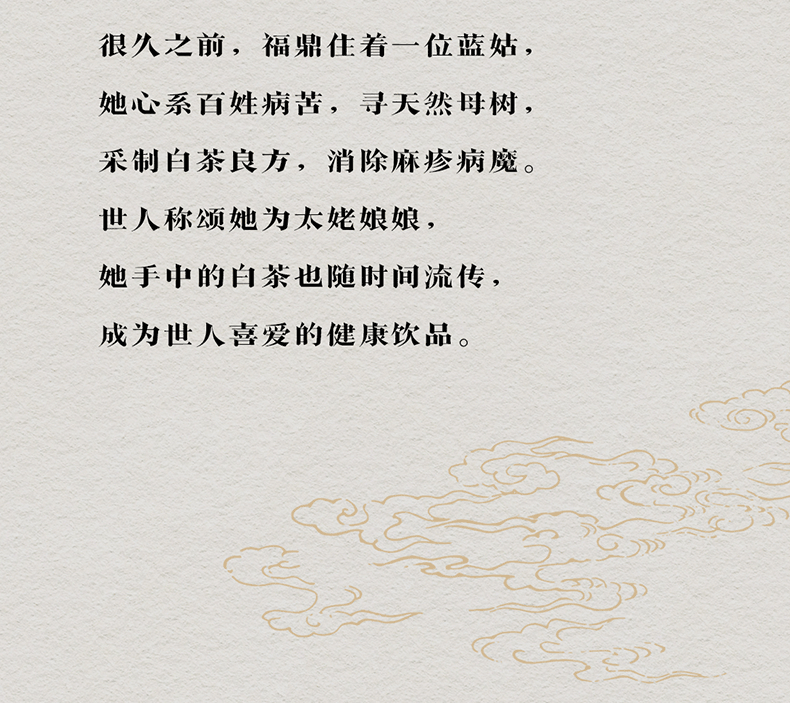 很久之前，福鼎住着一位蓝姑，
她心系百姓病苦，寻天然母树，
采制白茶良方，消除麻疹病魔。
世人称颂她为太姥娘娘，
她手中的白茶也随时间流传，
成为世人喜爱的健康饮品。